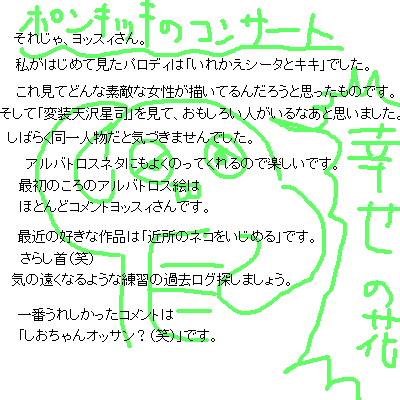 ポンキッキのコンサート
それじゃ、ヨッスィさん。
私がはじめて見たパロディは「いれかえシータとキキ」でした。
これ見てどんな素敵な女性が描いてるんだろうと思ったものです。
そして「変装天沢星司」を見て、おもしろい人がいるなあと思いました。
しばらく同一人物だと気づきませんでした。
アルバトロスネタにもよくのってくれるので楽しいです。
最初のころのアルバトロス絵は
ほとんどコメントヨッスィさんです。
最近の好きな作品は「近所のネコをいじめる」です。
さらし首(笑)
気の遠くなるような練習の過去ログ探しましょう。
一番うれしかったコメントは
「しおちゃんオッサン？(笑)」です。
幸せの花